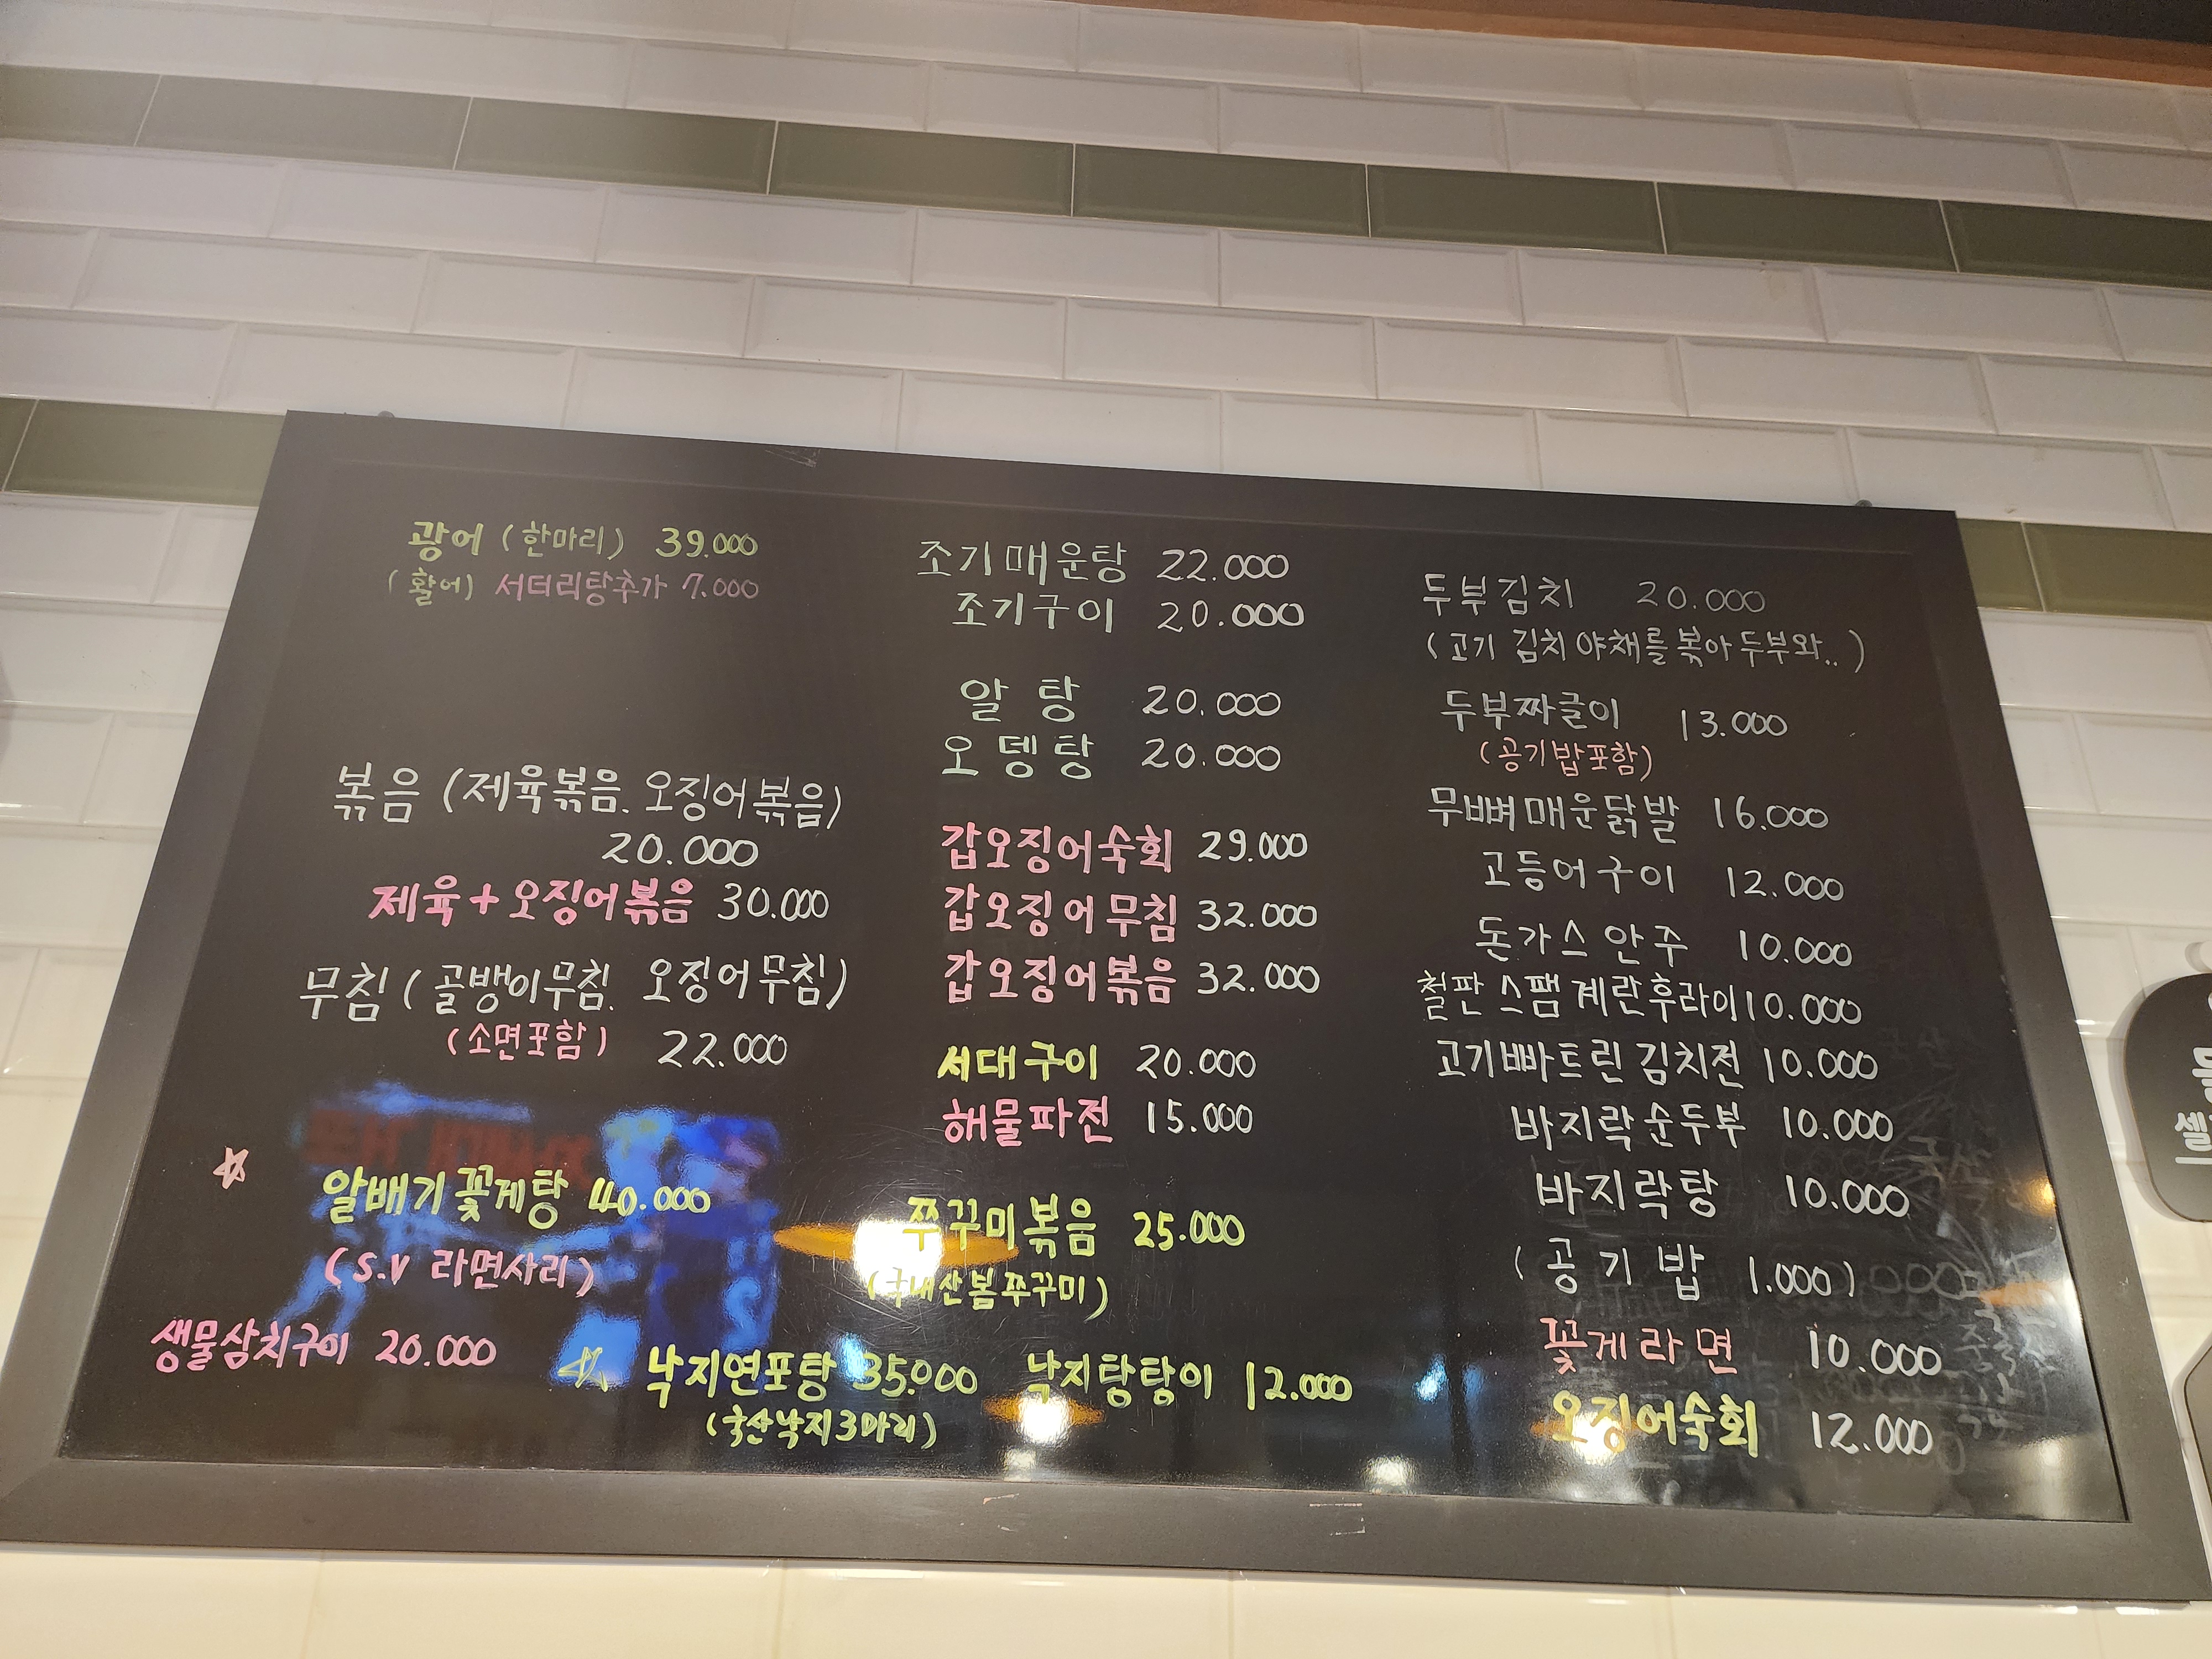 광어 (한마리) 39.000
(활어) 서더리탕추가 7.000
볶음 (제육볶음. 오징어볶음)
20.000
제육+오징어볶음 30.000
무침 (골뱅이무침. 오징어무침)
(소면포함) 22.000
알배기꽃게탕 40.000
(S.V 라면사리)
생물삼치구이 20.000
낙지연포탕 35.000
(국산낙지3마리)
조기매운탕 22.000
조기구이 20.000
알탕 20.000
오뎅탕 20.000
갑오징어숙회 29.000
갑오징어무침 32.000
갑오징어볶음 32.000
서대구이 20.000
해물파전 15.000
쭈꾸미볶음 25.000
(국내산봄쭈꾸미)
낙지탕탕이 12.000
두부김치 20.000
(고기 김치 야채를 볶아 두부와..)
두부짜글이 13.000
(공기밥포함)
무뼈매운닭발 16.000
고등어구이 12.000
돈가스안주 10.000
철판스팸계란후라이 10.000
고기빠트린김치전 10.000
바지락순두부 10.000
바지락탕 10.000
(공기밥 1.000)
꽃게라면 10.000
오징어숙회 12.000